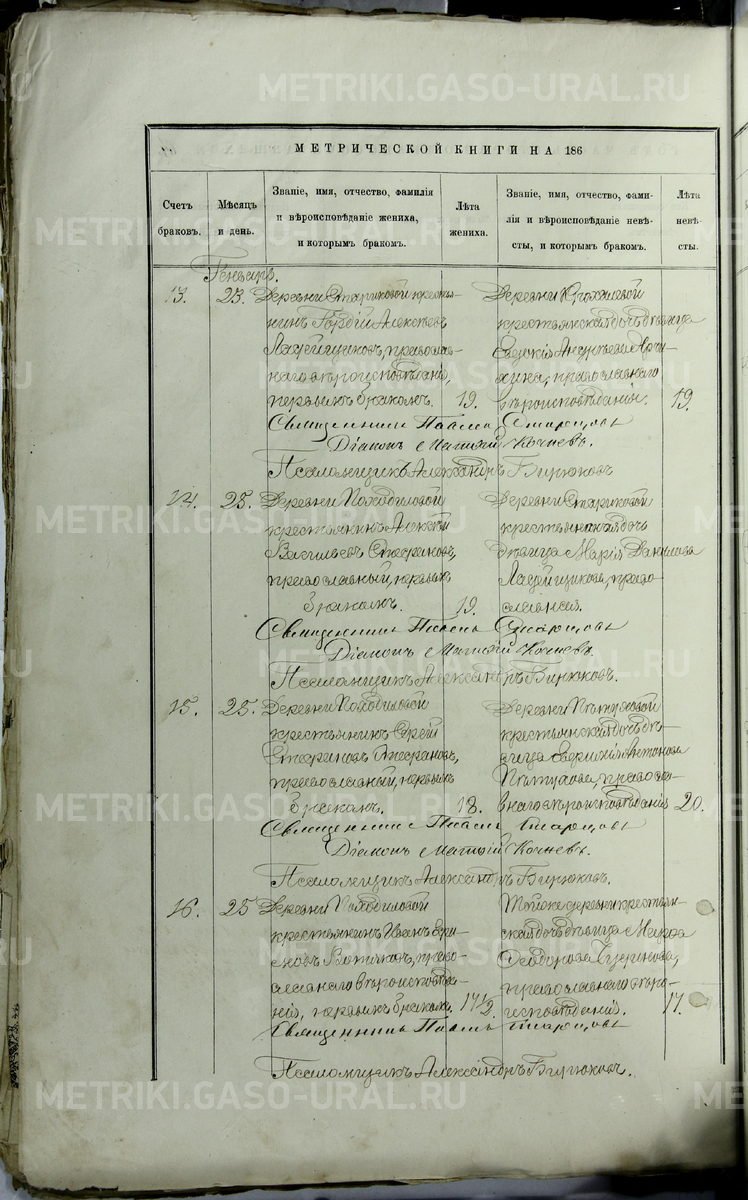 METRIKI.GASO-URAL.RU
МЕТРИЧЕСКОЙ КНИГИ НА 186
Счетъ браковъ.
Мѣсяцъ и день.
Званіе, имя, отчество, фамилія и вѣроисповѣданіе жениха, и которымъ бракомъ.
Лѣта жениха.
Званіе, имя, отчество, фамилія и вѣроисповѣданіе невѣсты, и которымъ бракомъ.
Лѣта невѣсты.
Январь.
13. 23. Деревни Стариковой крестья-
нинъ Гордій Алексѣевъ
православ-
наго вѣроисповѣданія,
первымъ бракомъ. 19.
Деревни
крестьянская дочь дѣвица
Евдокія Андреева
православнаго
вѣроисповѣданія. 19.
Священникъ Павелъ Старцовъ
Діаконъ Матѳій Кочневъ.
Псаломщикъ Александръ Бирюковъ
14. 25. Деревни Походиловой
крестьянинъ Алексѣй
Васильевъ
православный, первымъ
бракомъ. 19.
Деревни Стариковой
крестьянская дочь
дѣвица Марія Данилова
право-
славная.
Священникъ Павелъ Старцовъ
Діаконъ Матѳій Кочневъ.
Псаломщикъ Александръ Бирюковъ.
15. 25. Деревни Походиловой
крестьянинъ
православный, первымъ
бракомъ. 18.
Деревни
крестьянская дочь дѣ-
вица Антонова
правосла-
внаго вѣроисповѣданія 20.
Священникъ Павелъ Старцовъ
Діаконъ Матѳій Кочневъ.
Псаломщикъ Александръ Бирюковъ.
16. 25 Деревни Походиловой
крестьянинъ Иванъ
право-
славнаго вѣроисповѣда-
нія, первымъ бракомъ. 17 1/2.
Той же деревни крестьян-
ская дочь дѣвица
Ѳеодорова
православнаго вѣро-
исповѣданія. 17.
Священникъ Павелъ Старцовъ
Псаломщикъ Александръ Бирюковъ.